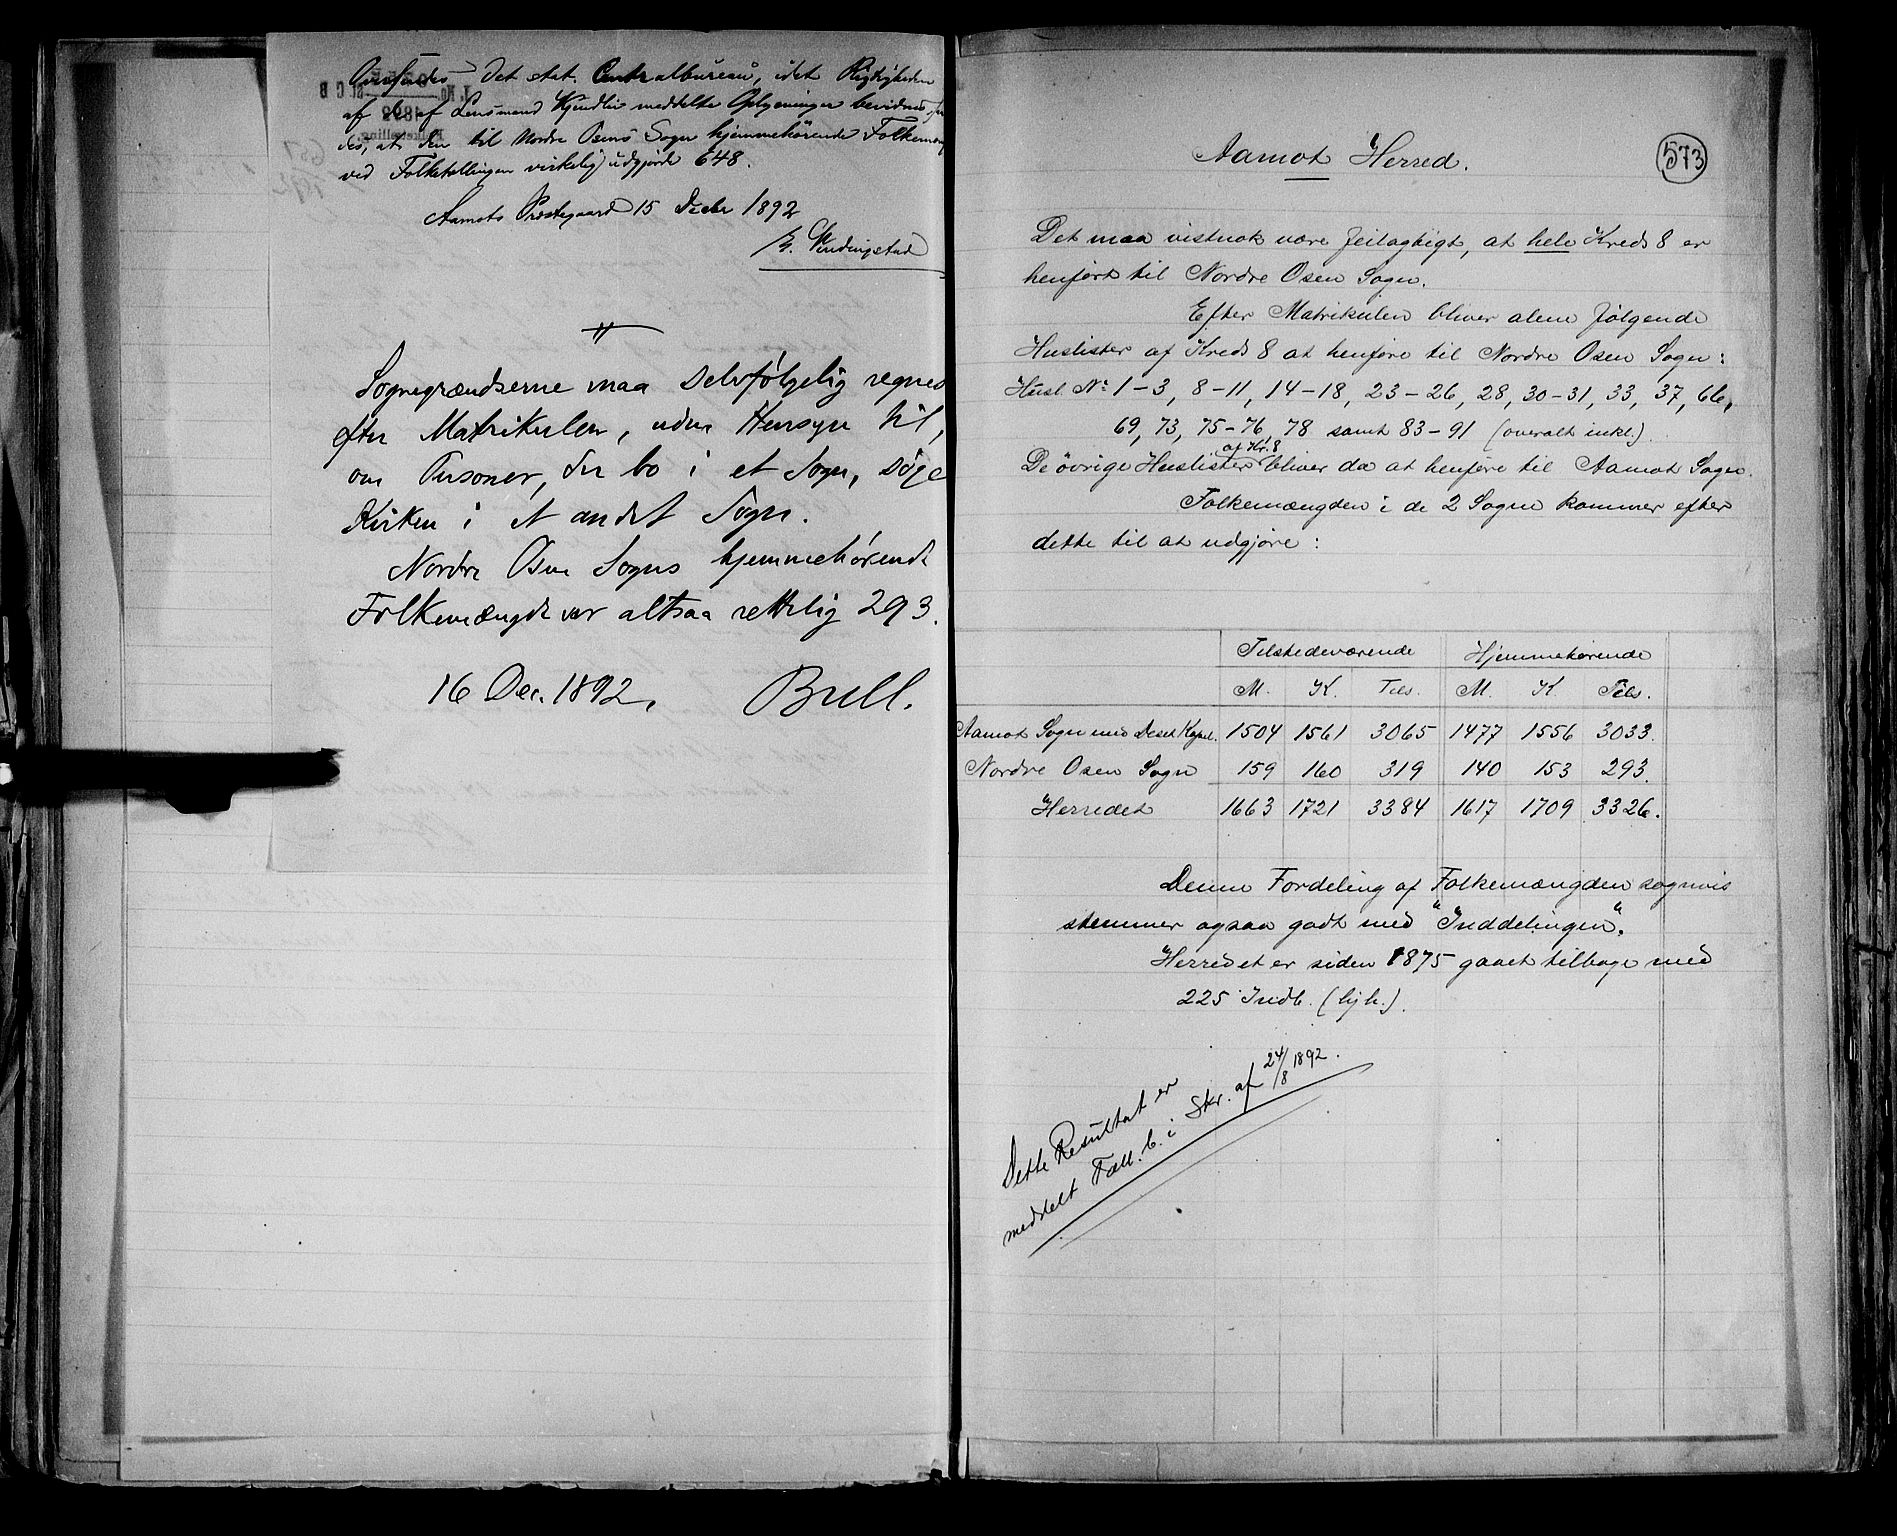 Oversendes det stat. Centralbureau, idet Rigtigheden
af de af Lensmand Kyndlie meddelte Oplysninger bevidnes,
at den til Nordre Osens Sogn hjemmehörende Folkemængde
ved Folketællingen virkelig udgjorde 648.
Aamots Præstegaard 15 Decbr 1892

Sognegrændserne maa selvfølgelig regnes
efter Matrikulen, uden Hensyn til,
om Personer, der bo i et Sogn, søge
Kirken i et andet Sogn.
Nordre Osen Sogns hjemmehörende
Folkemængde var altsaa rettelig 293.
16 Dec. 1892. Bull.
573
Aamot Herred.
Det maa vistnok være feilagtigt, at hele Kreds 8 er
henført til Nordre Osen Sogn.
Efter Matrikulen bliver alene følgende
Huslister af Kreds 8 at henføre til Nordre Osen Sogn:
Husl. No. 1-3, 8-11, 14-18, 23-26, 28, 30-31, 33, 37, 66,
69, 73, 75-76, 78 samt 83-91 (overalt inkl.).
De øvrige Huslister af Kr. 8 bliver da at henføre til Aamot Sogn.
Folkemængden i de 2 Sogne kommer efter
dette til at udgjøre:
Tilstedeværende Hjemmehørende
M. K. Tils. M. K. Tils.
Aamot Sogn med Deset Kapel. 1504 1561 3065 1477 1556 3033.
Nordre Osen Sogn 159 160 319 140 153 293.
Herredet 1663 1721 3384 1617 1709 3326.
Denne Fordeling af Folkemængden sognvis
stemmer ogsaa godt med "Inddelingen".
Herredet er siden 1875 gaaet tilbage med
225 Indb. (hjh.).
Dette Resultat er
meddelt Fæll. b. i Skr. af 24/8 1892.